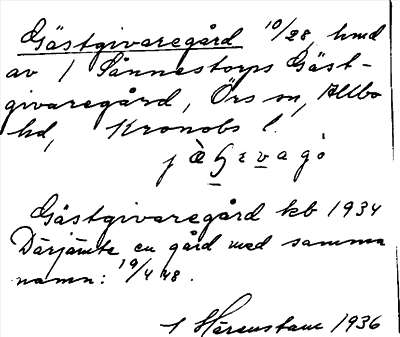 Gästgivaregård 10/28, hmd
av 1 Sånnestorps Gäst-
givaregård, Örs sn, Allbo
hd, Kronobs l.
Gästgivaregård kb 1934
Därjämte en gård med samma
namn: 19/4 48.
1 Härenstam 1936